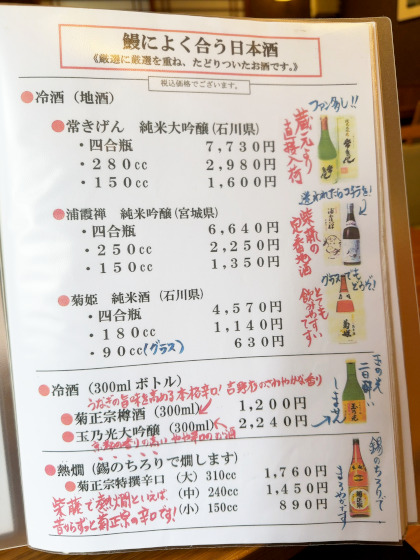 鰻によく合う日本酒
《厳選に厳選を重ね、たどりついたお酒です。》
税込価格でございます。
●冷酒（地酒）
●常きげん 純米大吟醸(石川県)
・四合瓶 7,730円
・280cc 2,980円
・150cc 1,600円
ファン多し!!
蔵元より
直接入荷
●浦霞禅 純米吟醸(宮城県)
・四合瓶 6,640円
・250cc 2,250円
・150cc 1,350円
迷われたらコチラを!
柴藤の
定番地酒
●菊姫 純米酒（石川県)
・四合瓶 4,570円
・180cc 1,140円
・90cc(グラス) 630円
グラスでも
どうぞ!
とても
飲みやすい
●冷酒（300mlボトル）
うなぎの旨味を高める本格辛口!吉野杉のさわやかな香り
●菊正宗樽酒(300ml) 1,200円
●玉乃光大吟醸(300ml) 2,240円
やや辛口のお酒
玉の光
二日酔い
しません
●熱燗（錫のちろりで燗します）
●菊正宗特撰辛口（大）310cc 1,760円
（中）240cc 1,450円
（小）150cc 890円
柴藤で熱燗といえば、
昔からずっと菊正宗の辛口です!
錫のちろりで
まろやかです